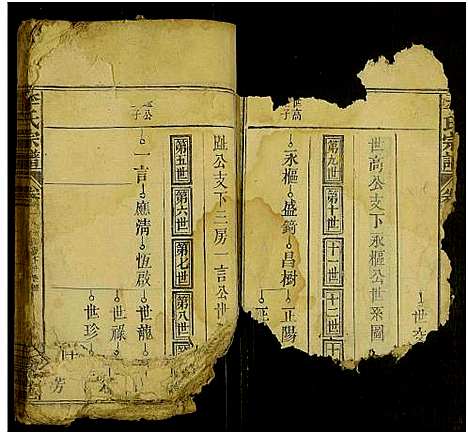 氏宗譜
世高公支下永樞公世系圖
第九世 第十世 十一世 十二世
世高
子
永樞 盛錡 昌樹 正陽
趾公支下三房一言公世
第五世 第六世 第七世 第八世
公
子
一言 應清 恆啟 世龍
世祿
世珍
氏宗譜
卷
芳